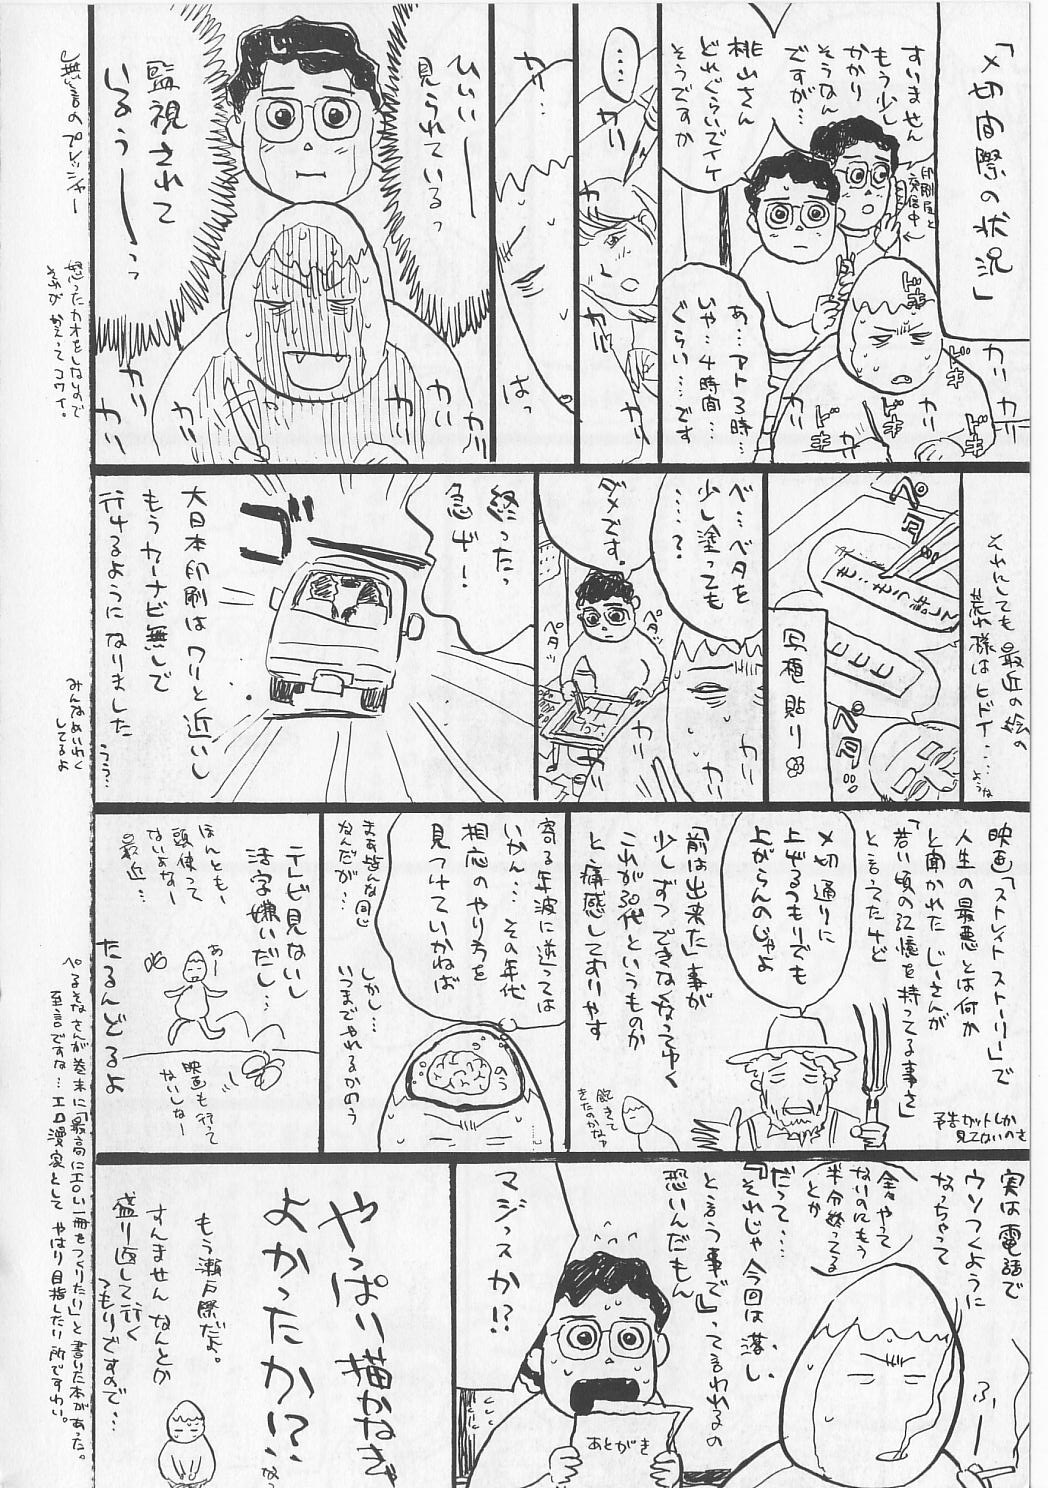 「〆切間際の状況」
すいません
もう少し
かかり
そうなん
ですが…
桃山さん
どれぐらいでイケ
そうですか
印刷屋と
交信中
あ…アト3時…
いや…4時間…
ぐらい…です
ドキ
ドキ
ドキ
ドキ
ドキ
カリ
カリ
カリ
……
カリ
カリ
カリ
カリ…
はっ
ひいぃー
見られているっ
監視されて
いるぅーーっっ
カリ
カリ
カリ
カリ
カリ
無言のプレッシャー
怒ったカオをしないので
それが かえってコワイ。
それにしても最近の絵の
荒れ様はヒドイ…
ような
ペタ…
ペタ…
写植貼り
ベ…ベタを
少し塗っても
……?
ダメです。
ペタッ
ペタッ
カリ
カリ
カリ
カリ
終ったっ
急げー!
ゴー
大日本印刷はワリと近いし
もうカーナビ無しで
行けるようになりました
うう…
みんなめいわく
してるよ
映画「ストレイトストーリー」で
人生の最悪とは何か
と聞かれたじーさんが
「若い頃の記憶を持ってる事さ」
と言ってたけど
予告カットしか
見てないのさ
〆切通りに
上げるつもりでも
上がらんのじゃよ
「前は出来た」事が
少しずつできなくなってゆく
これが30代というものか
と痛感しておりやす
飽きて
きたのかなァ
寄る年波に逆っては
いかん…その年代
相応のやり方を
見つけていかねば
まぁ皆んな同じ
なんだが…
のう
しかし…
いつまでやれるかのう
テレビ見ないし
活字嫌いだし…
ほんとも、
頭使って
ないよなー
最近…
あー
映画も行って
ないしなー
たるんどるよ
ぺるそなさんが巻末に「最高にエロい一冊をつくりたい」と書いた本があった。
至言ですな…エロ漫家として やはり目指したい所ですわい。
実は電話で
ウソつくように
なっちゃって
全然やって
ないのにもう
半分終ってる
とか
ふー
だって…
『それじゃ今回は落し、
と言う事で』って言われるの
恐いんだもん
マジっスか!?
あとがき
やっぱい描かねぇ
よかったか!?
もう瀬戸際だよ。
すんません なんとか
盛り返して行く
つもりですので…